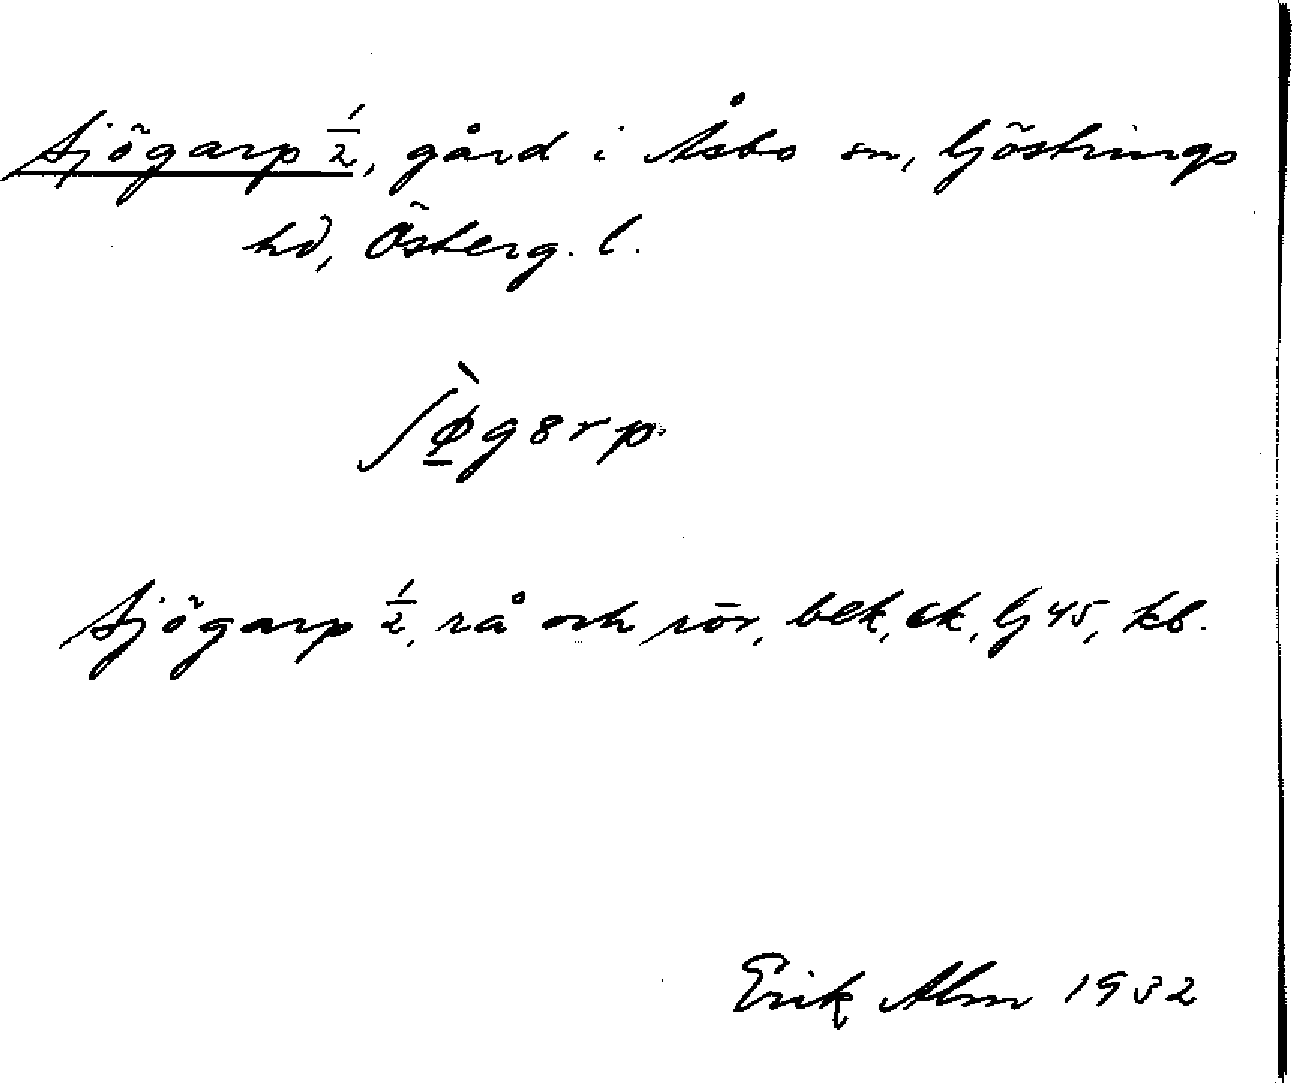 Sjögarp 1/2, gård i Åsbo sn, Göstrings
hd, Österg. l.
ʃø̱̀gɜrp.
Sjögarp 1/2, rå och rör, bek, ek, lj 45, kb.
Erik Alm 1932